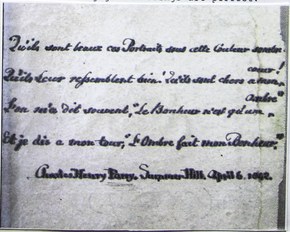 Qu'ils sont beaux ces Portraits sous cette Couleur sombre
Qu'ils Leur ressemblent bien! Qu'ils sont chers a mon
coeur!
L'on m'a dit souvent, "Le Bonheur n'est qu'um-
Ombre"
Et je dis a mon tour, "L'Ombre fait mon Bonheur."
Charles Henry Summer Hill, April 6.